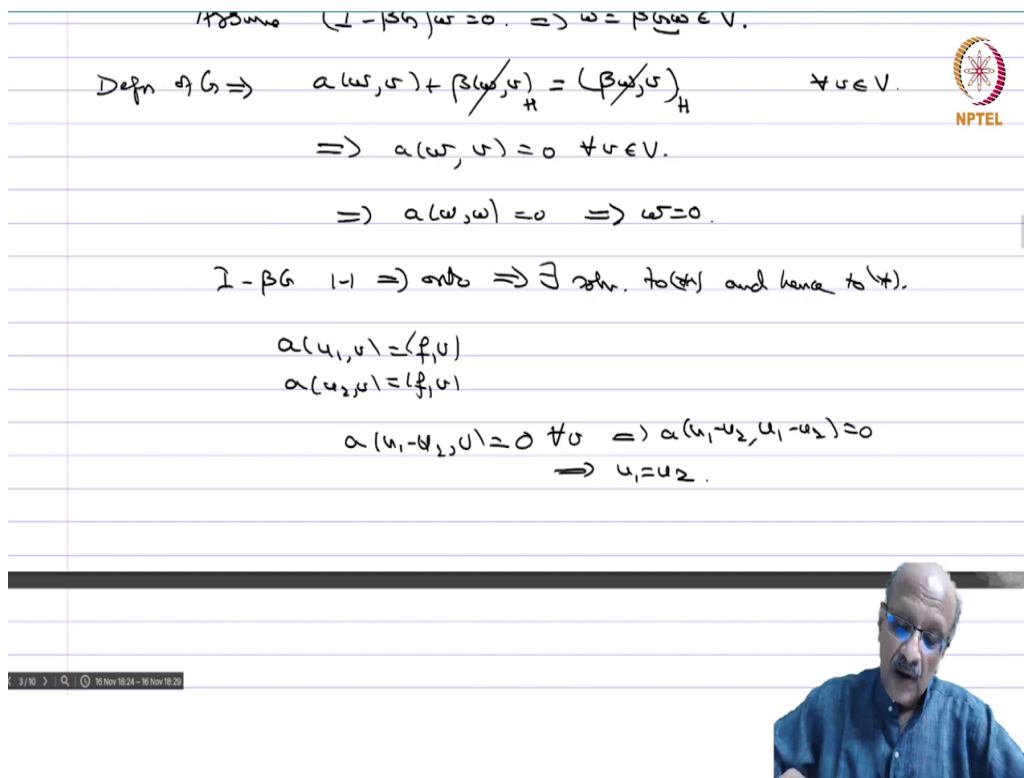 Assume (I - βG)w = 0. => w = βGw ∈ V.
Defn of G => a(w,v) + β(w,v)_H = (βw,v)_H ∀ v ∈ V.
=> a(w,v) = 0 ∀ v ∈ V.
=> a(w,w) = 0 => w = 0.
I - βG 1-1 => onto => ∃ soln. to (**) and hence to (*).
a(u₁,v) = (f,v)
a(u₂,v) = (f,v)
a(u₁-u₂,v) = 0 ∀v => a(u₁-u₂,u₁-u₂) = 0
=> u₁ = u₂.
NPTEL
3/10 > 16 Nov 18:24 - 16 Nov 18:29